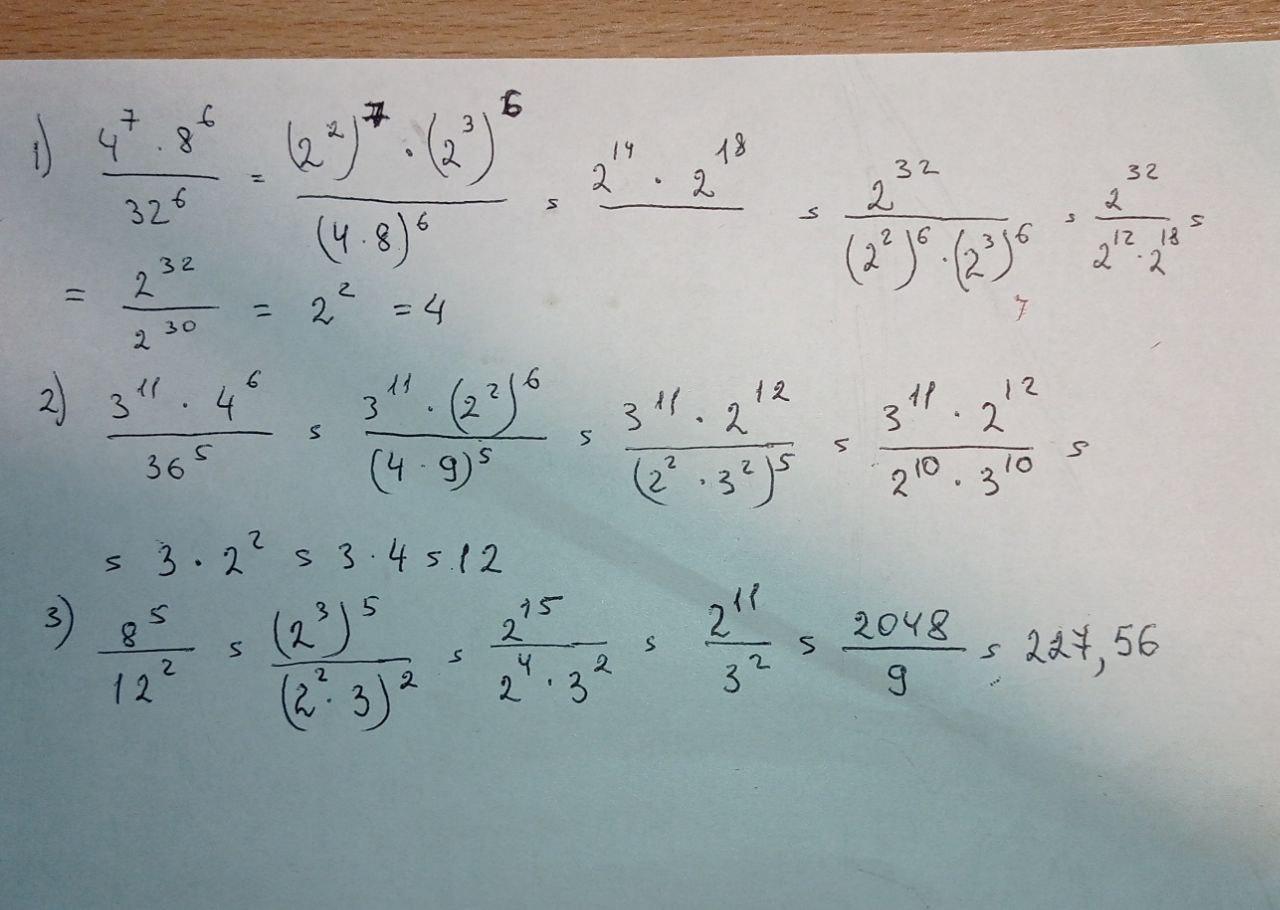 1) \frac{4^7 \cdot 8^6}{32^6} = \frac{(2^2)^7 \cdot (2^3)^6}{(4 \cdot 8)^6} = \frac{2^{14} \cdot 2^{18}}{} = \frac{2^{32}}{(2^2)^6 \cdot (2^3)^6} = \frac{2^{32}}{2^{12} \cdot 2^{18}} =
7
= \frac{2^{32}}{2^{30}} = 2^2 = 4
2) \frac{3^{11} \cdot 4^6}{36^5} = \frac{3^{11} \cdot (2^2)^6}{(4 \cdot 9)^5} = \frac{3^{11} \cdot 2^{12}}{(2^2 \cdot 3^2)^5} = \frac{3^{11} \cdot 2^{12}}{2^{10} \cdot 3^{10}} =
= 3 \cdot 2^2 = 3 \cdot 4 = 12
3) \frac{8^5}{12^2} = \frac{(2^3)^5}{(2^2 \cdot 3)^2} = \frac{2^{15}}{2^4 \cdot 3^2} = \frac{2^{11}}{3^2} = \frac{2048}{9} = 227,56